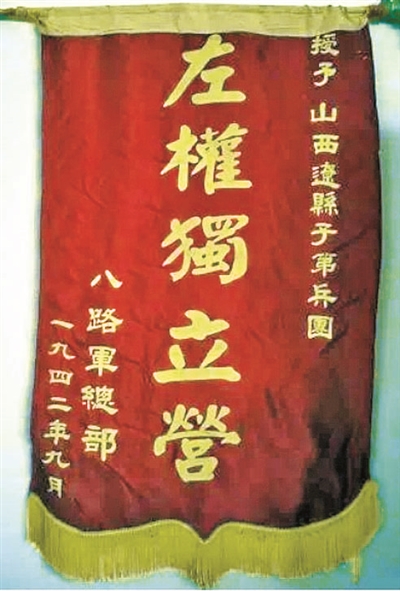 授予山西遼縣子第兵團
左權獨立營
八路軍總部
一九四二年九月